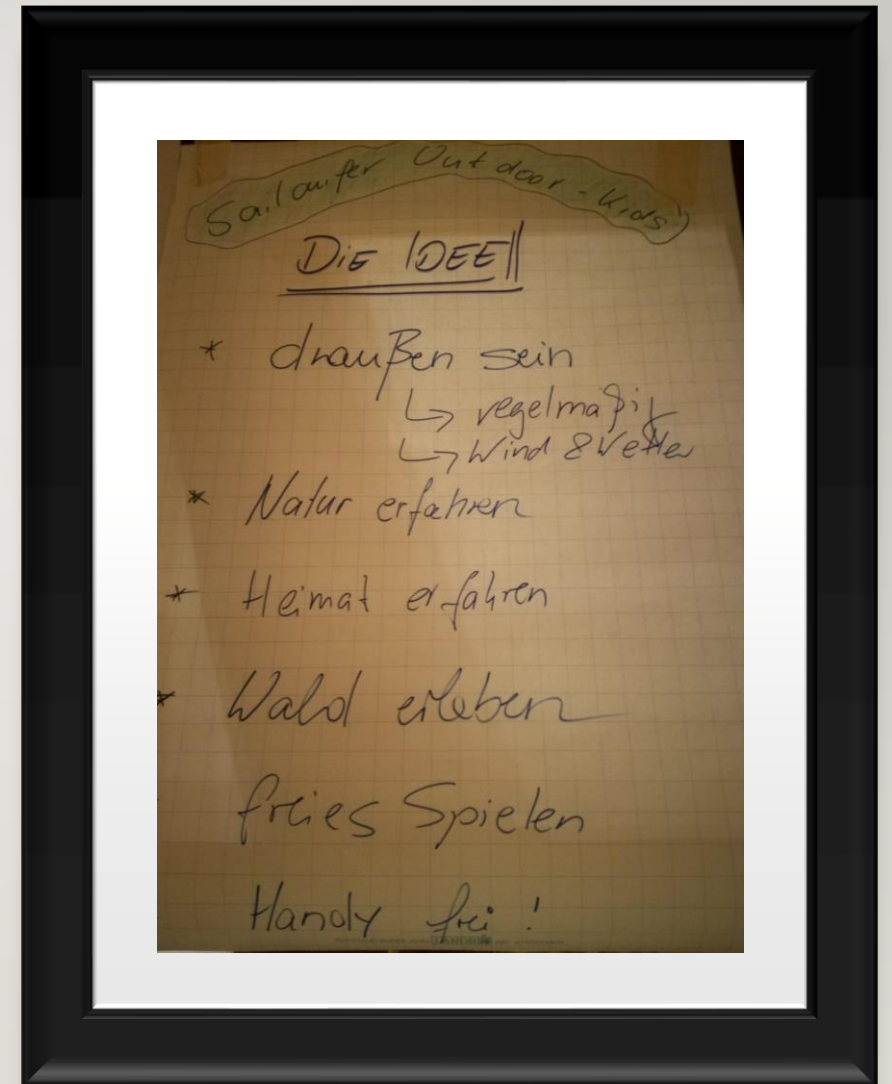 Sailaufer Outdoor-Kids
DIE IDEE
* draußen sein
↳ regelmäßig
↳ Wind & Wetter
* Natur erfahren
* Heimat erfahren
* Wald erleben
freies Spielen
Handy frei !